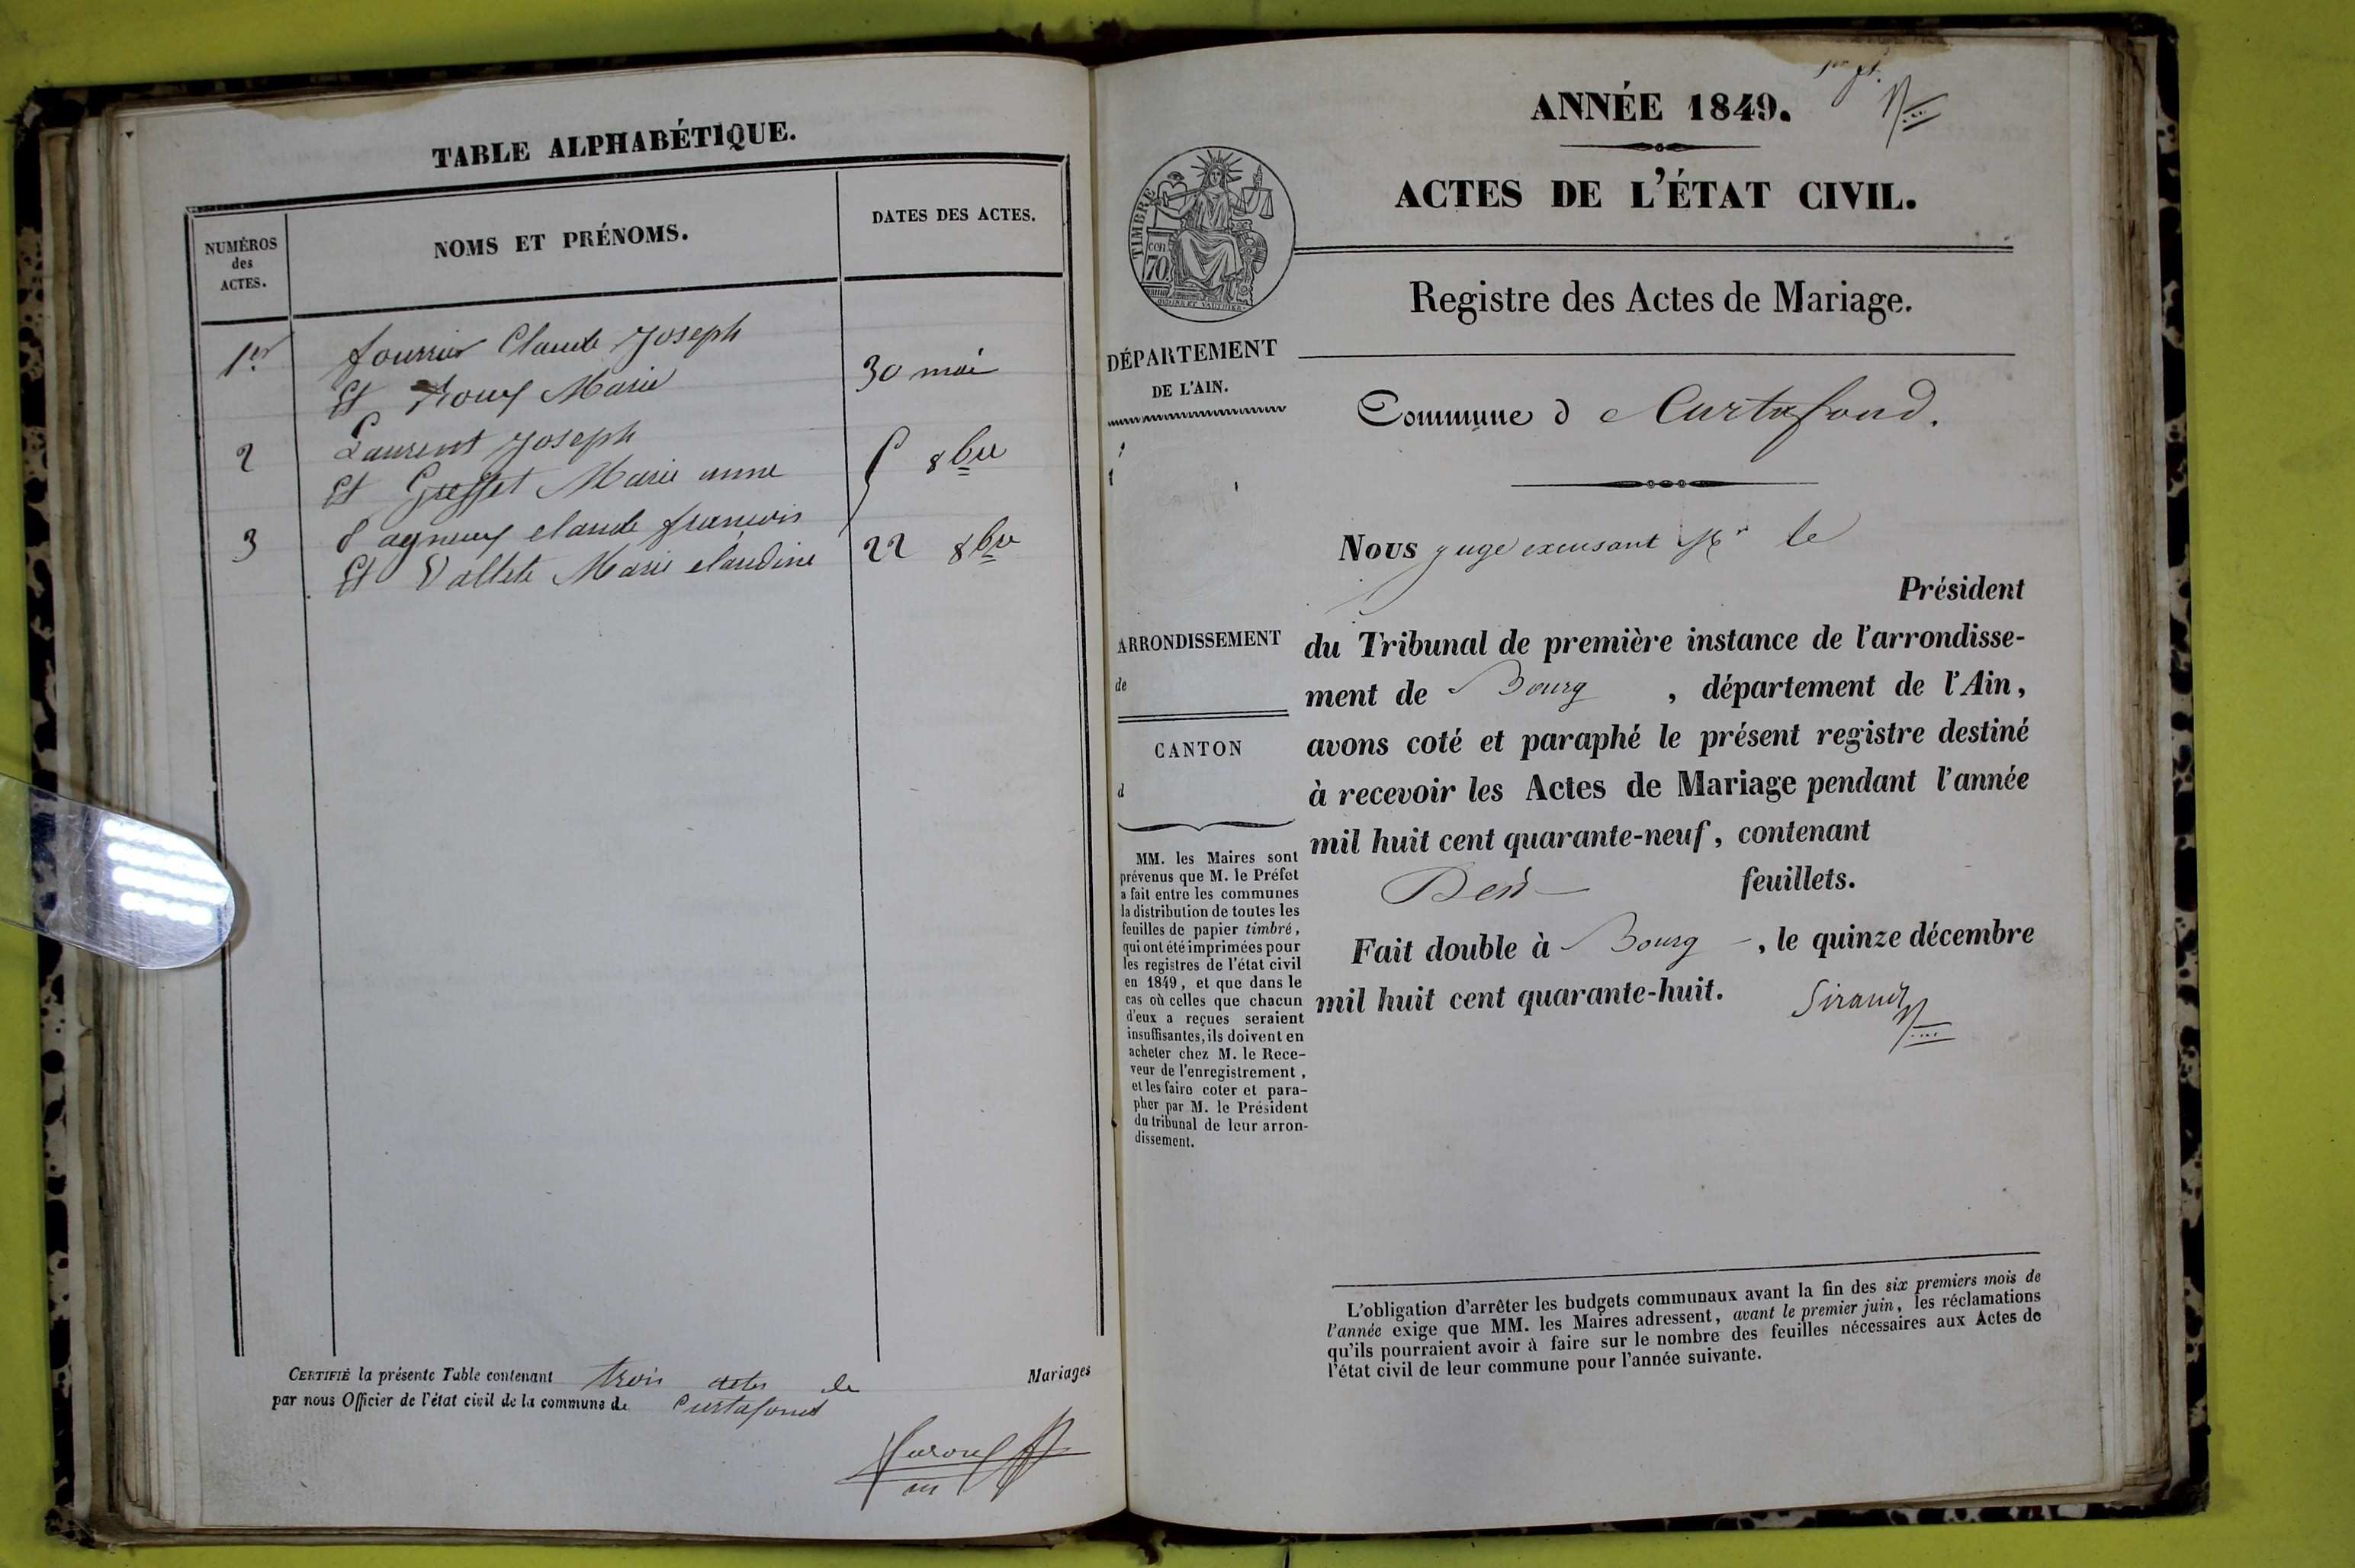 TABLE ALPHABÉTIQUE.
NUMÉROS
des
ACTES.
NOMS ET PRÉNOMS.
DATES DES ACTES.
1er fourrier Claude Joseph
Et Marie 30 mai
2 Laurent Joseph
Et Marie anne 8bre
3 claude francois
Et Vallete Marie claudine 22 8bre
CERTIFIÉ la présente Table contenant trois actes de Mariages
par nous Officier de l'état civil de la commune de Curtafond
ANNÉE 1849.
ACTES DE L'ÉTAT CIVIL.
TIMBRE
70
Registre des Actes de Mariage.
DÉPARTEMENT
DE L'AIN.
Commune d Curtafond.
Nous juge excusant Mr le
Président
du Tribunal de première instance de l'arrondisse-
ment de Bourg , département de l'Ain,
avons coté et paraphé le présent registre destiné
à recevoir les Actes de Mariage pendant l'année
mil huit cent quarante-neuf, contenant
feuillets.
Fait double à Bourg , le quinze décembre
mil huit cent quarante-huit.
Sirand
ARRONDISSEMENT
de
CANTON
d
MM. les Maires sont
prévenus que M. le Préfet
a fait entre les communes
la distribution de toutes les
feuilles de papier timbré,
qui ont été imprimées pour
les registres de l'état civil
en 1849, et que dans le
cas où celles que chacun
d'eux a reçues seraient
insuffisantes, ils doivent en
acheter chez M. le Rece-
veur de l'enregistrement,
et les faire coter et para-
pher par M. le Président
du tribunal de leur arron-
dissement.
L'obligation d'arrêter les budgets communaux avant la fin des six premiers mois de
l'année exige que MM. les Maires adressent, avant le premier juin, les réclamations
qu'ils pourraient avoir à faire sur le nombre des feuilles nécessaires aux Actes de
l'état civil de leur commune pour l'année suivante.